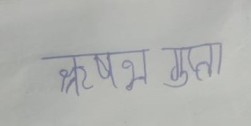 ऋषभ गुप्ता